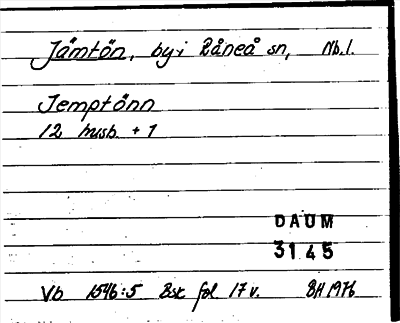 Jämtön, by i Råneå sn, Nb.l.
Jemptönn
12 hush. + 1
DAUM
3145
Vb 1546:5 Bsk fol. 17 v. BH 1976